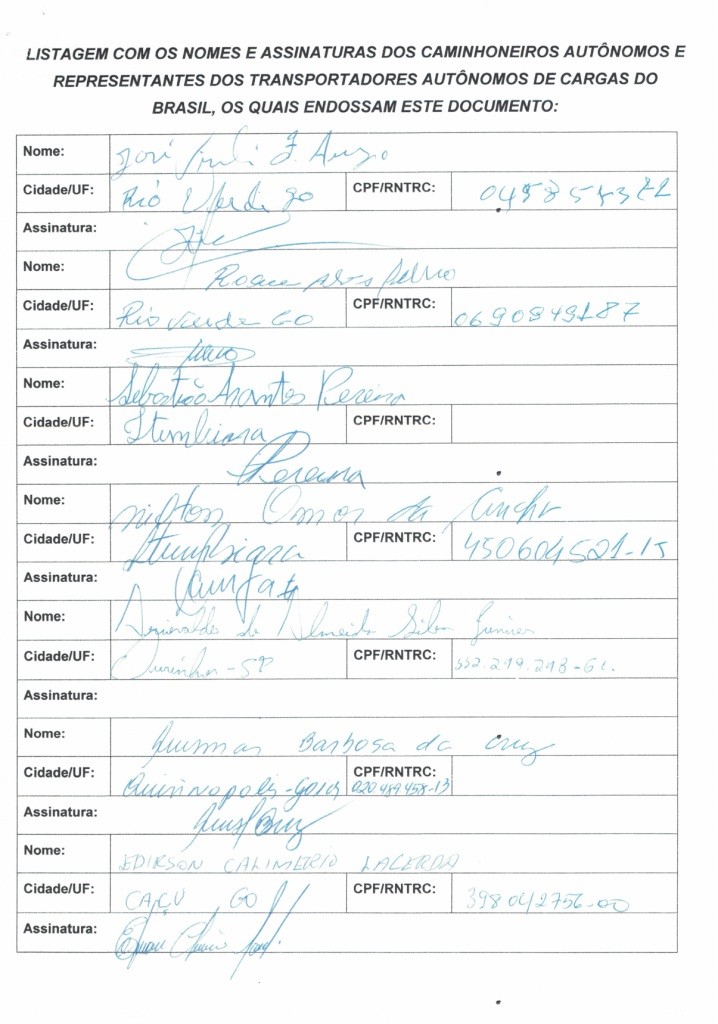 LISTAGEM COM OS NOMES E ASSINATURAS DOS CAMINHONEIROS AUTÔNOMOS E
REPRESENTANTES DOS TRANSPORTADORES AUTÔNOMOS DE CARGAS DO
BRASIL, OS QUAIS ENDOSSAM ESTE DOCUMENTO:
Nome: José
Cidade/UF: Rio Verde go CPF/RNTRC:
Assinatura:
Nome: Roque
Cidade/UF: Rio Verde GO CPF/RNTRC: 0690849187
Assinatura:
Nome: Sebastião Arantes Pereira
Cidade/UF: Itumbiara CPF/RNTRC:
Assinatura: Pereira
Nome: nilton Omar da Cunha
Cidade/UF: Itumbiara CPF/RNTRC: 450604521-15
Assinatura:
Nome: de Almeida Silva Junior
Cidade/UF: Ourinhos-SP CPF/RNTRC:
Assinatura:
Nome: Barbosa da cruz
Cidade/UF: CPF/RNTRC: 020489458-13
Assinatura:
Nome: EDIRSON CALIMERIO LACERDA
Cidade/UF: CAÇU GO CPF/RNTRC: 398042756-00
Assinatura: